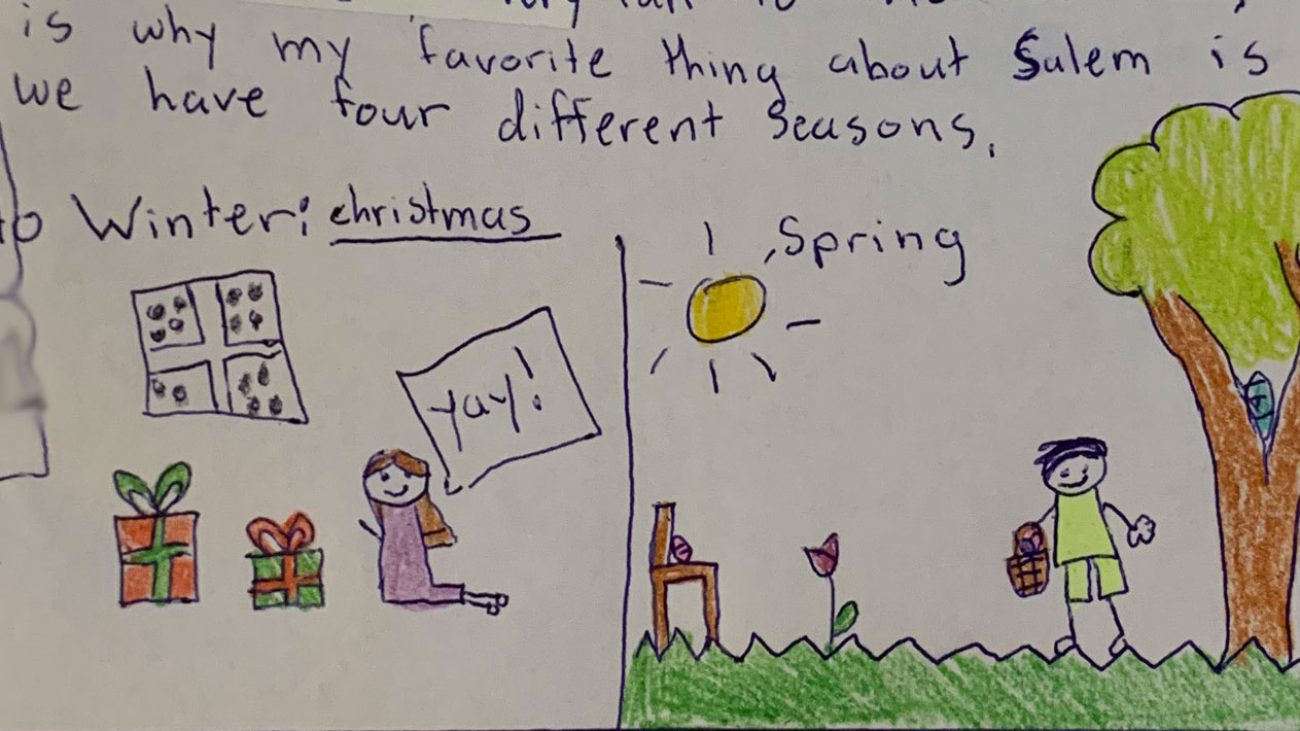 is why my favorite thing about Salem is
we have four different seasons.
to Winter: christmas
, Spring
yay!